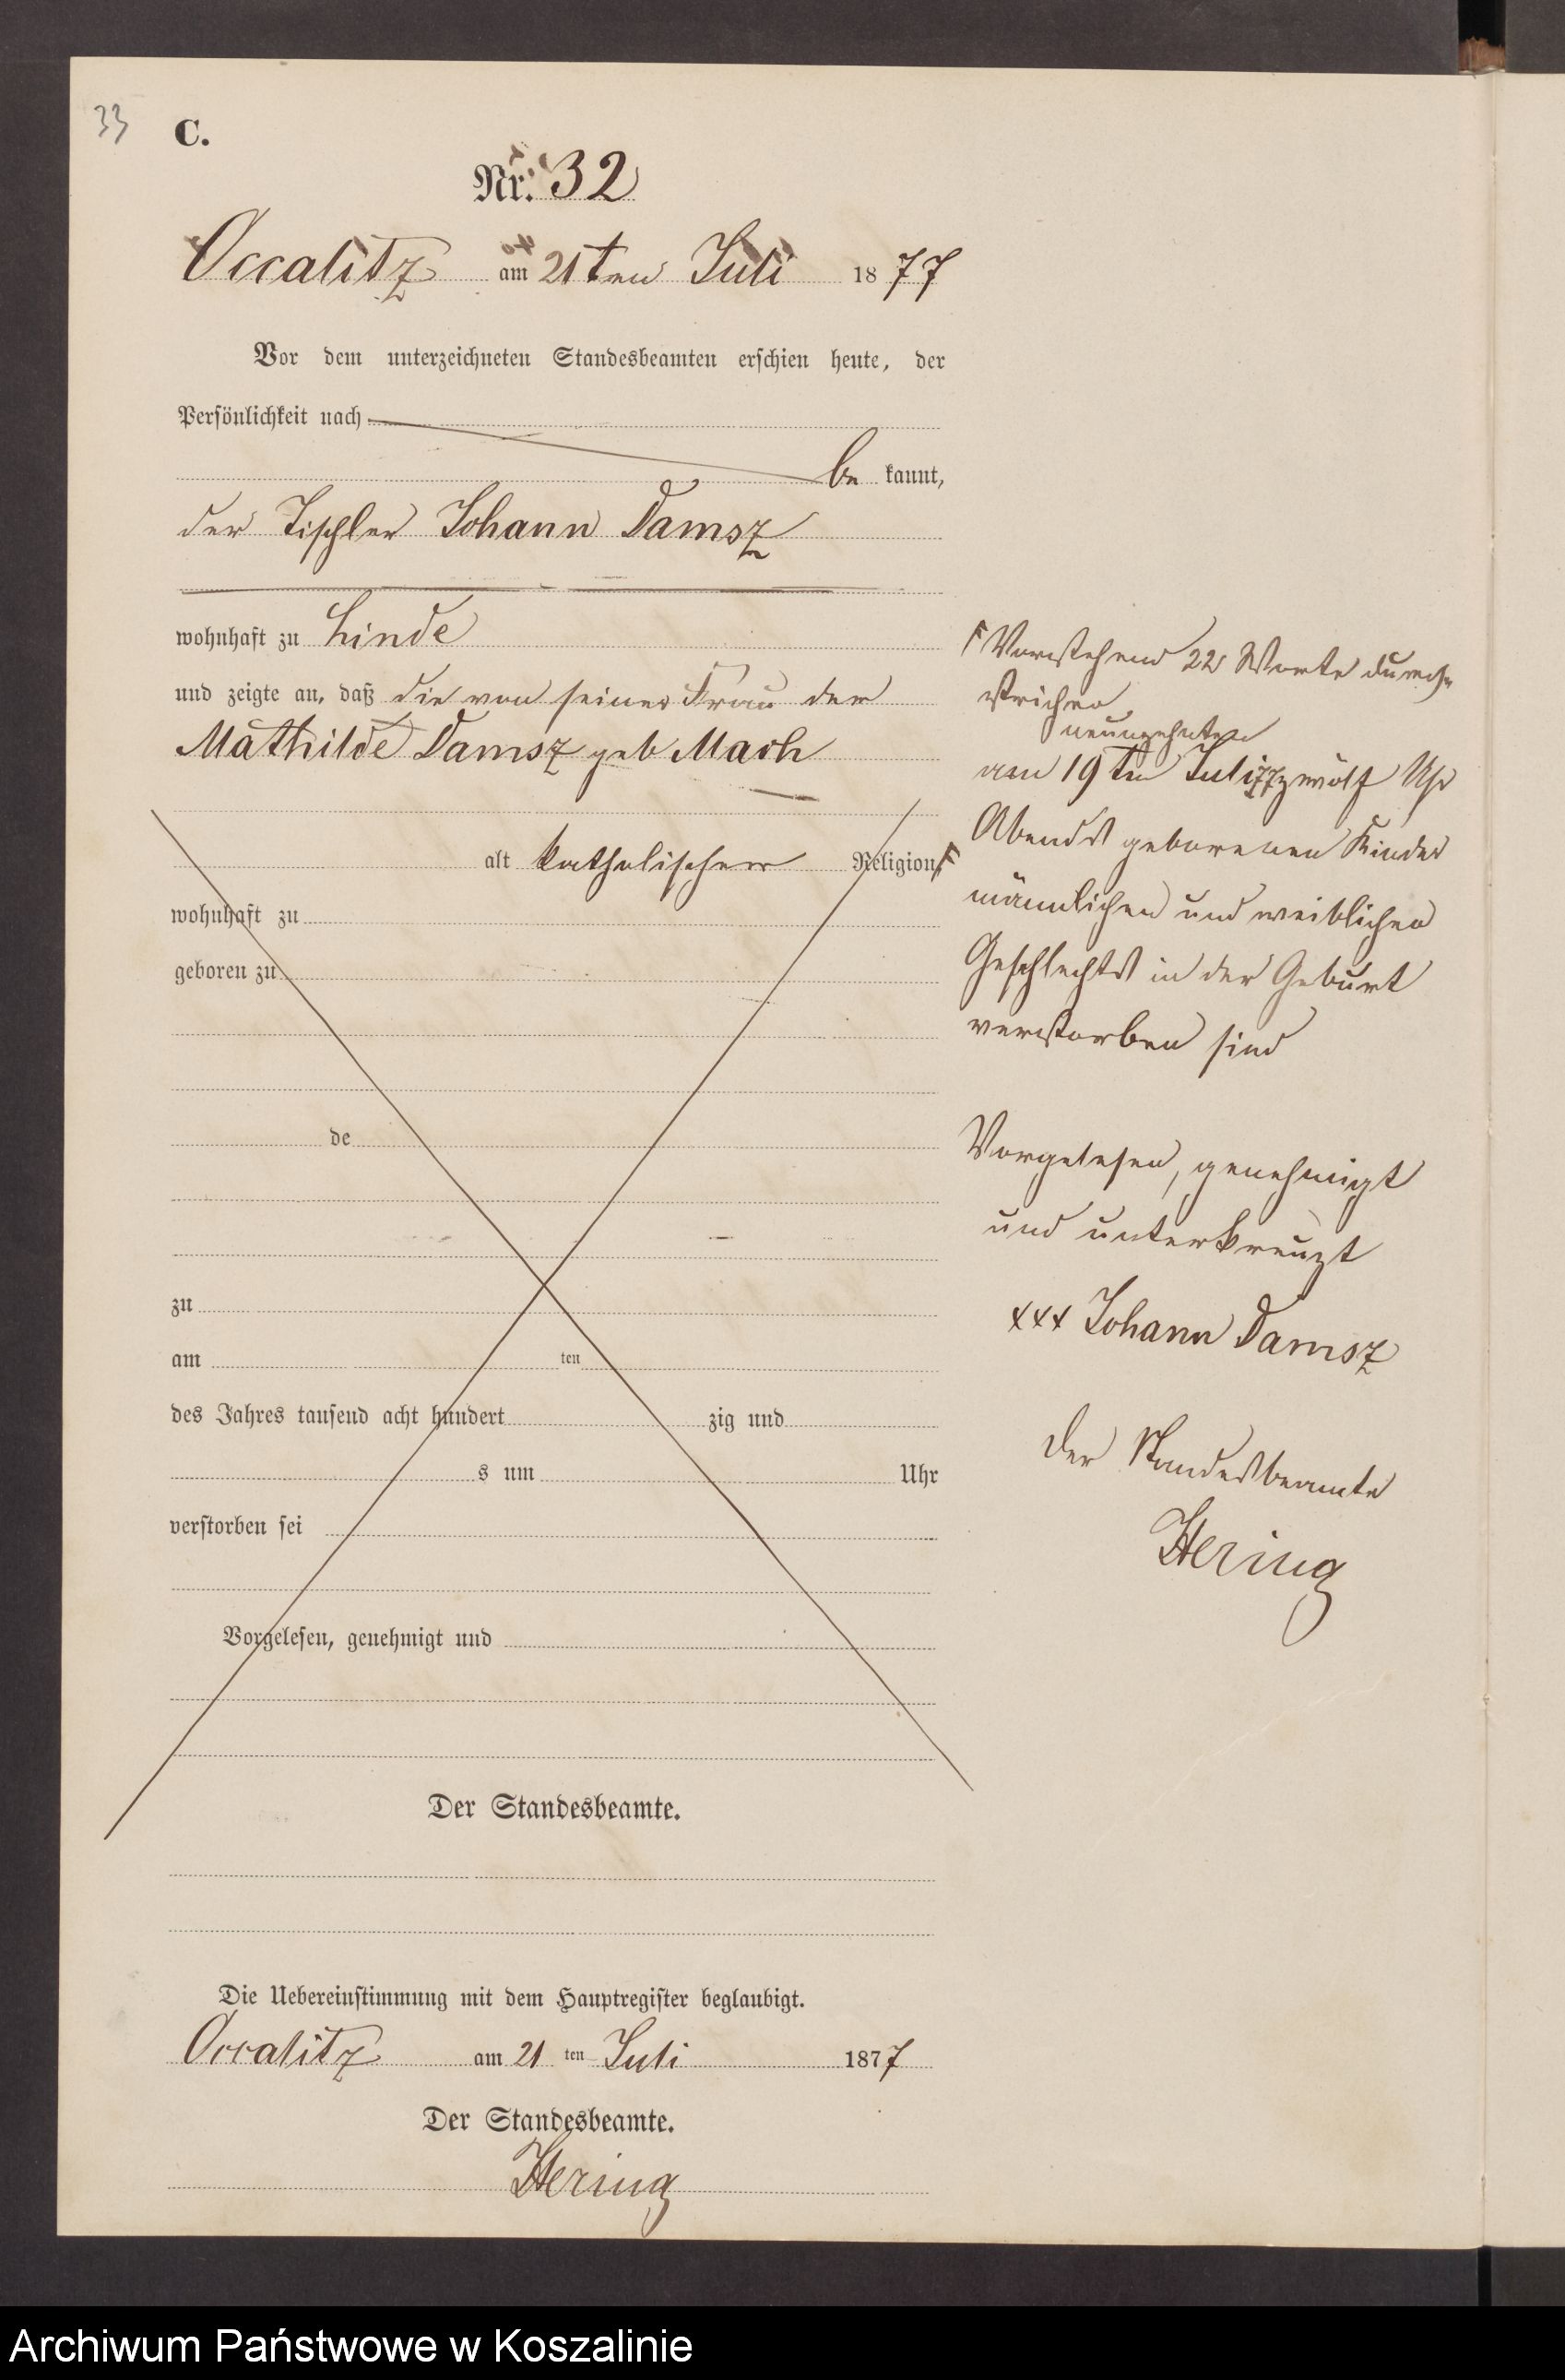 33
C.
Nr. 32
Occalitz am 21ten Juli 1877
Vor dem unterzeichneten Standesbeamten erschien heute, der
Persönlichkeit nach
be kannt,
der Tischler Johann Damsz
wohnhaft zu Linde
und zeigte an, daß die von seiner Frau der
Mathilde Damsz geb Mach
alt katholischer Religion F
wohnhaft zu
geboren zu
de
zu
am ten
des Jahres tausend acht hundert zig und
s um Uhr
verstorben sei
Vorgelesen, genehmigt und
Der Standesbeamte.
Die Uebereinstimmung mit dem Hauptregister beglaubigt.
Occalitz am 21 ten Juli 1877
Der Standesbeamte.
Hering
F Vorstehend 22 Worte durch-
strichen
neunzehnten
am 19ten Juli 77 zwölf Uhr
Abends geborenen Kinder
männlichen und weiblichen
Geschlechts in der Geburt
verstorben sind
Vorgelesen, genehmigt
und unterkreuzt
xxx Johann Damsz
Der Standesbeamte
Hering
Archiwum Państwowe w Koszalinie